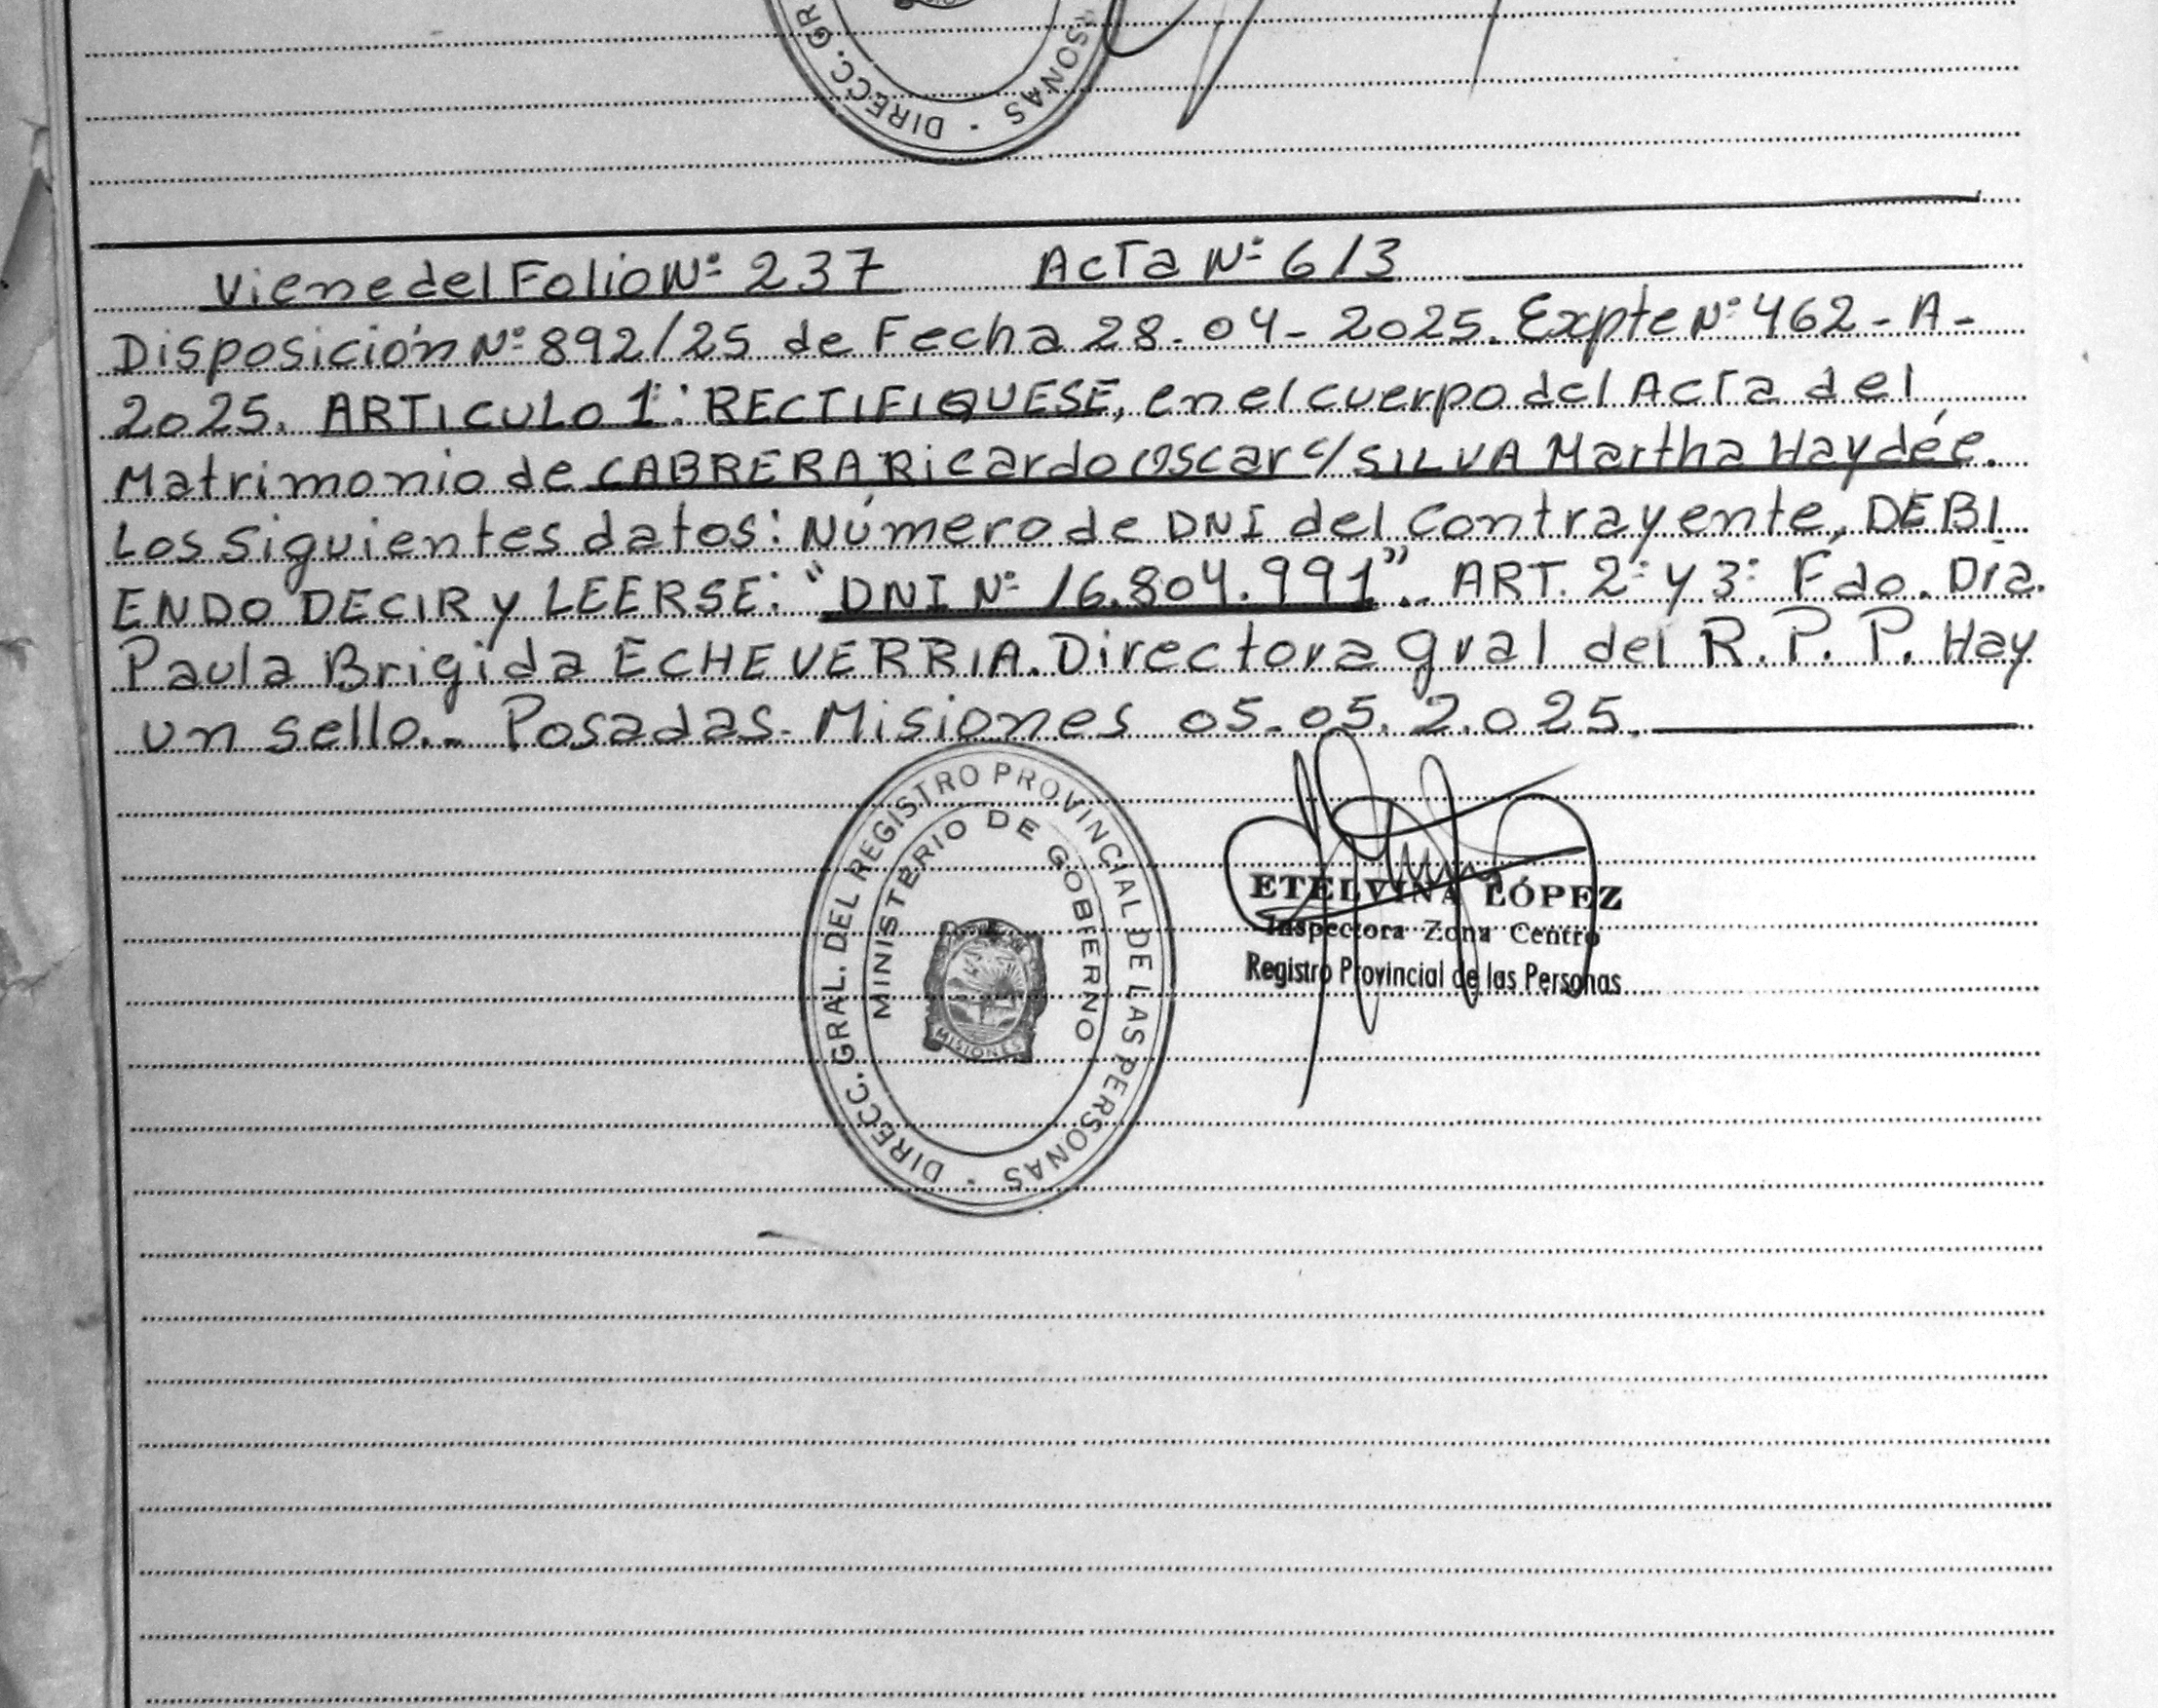 DIRECC. GR
SONAS
Viene del Folio Nº 237 Acta Nº 613
Disposición Nº 892/25 de Fecha 28-04-2025. Expte Nº 462-A-
2025. ARTICULO 1º: RECTIFIQUESE, en el cuerpo del Acta del
Matrimonio de CABRERA Ricardo Oscar c/ SILVA Martha Haydée.
Los Siguientes datos: Número de DNI del Contrayente, DEBI
ENDO DECIR y LEERSE: "DNI Nº 16.804.991". ART. 2º y 3º Fdo. Dra.
Paula Brigida ECHEVERRIA. Directora gral del R.P.P. Hay
un sello.- Posadas- Misiones 05-05-2.025.
DIRECC. GRAL. DEL REGISTRO PROVINCIAL DE LAS PERSONAS
MINISTERIO DE GOBIERNO
MISIONES
ETELVINA LÓPEZ
Inspectora Zona Centro
Registro Provincial de las Personas